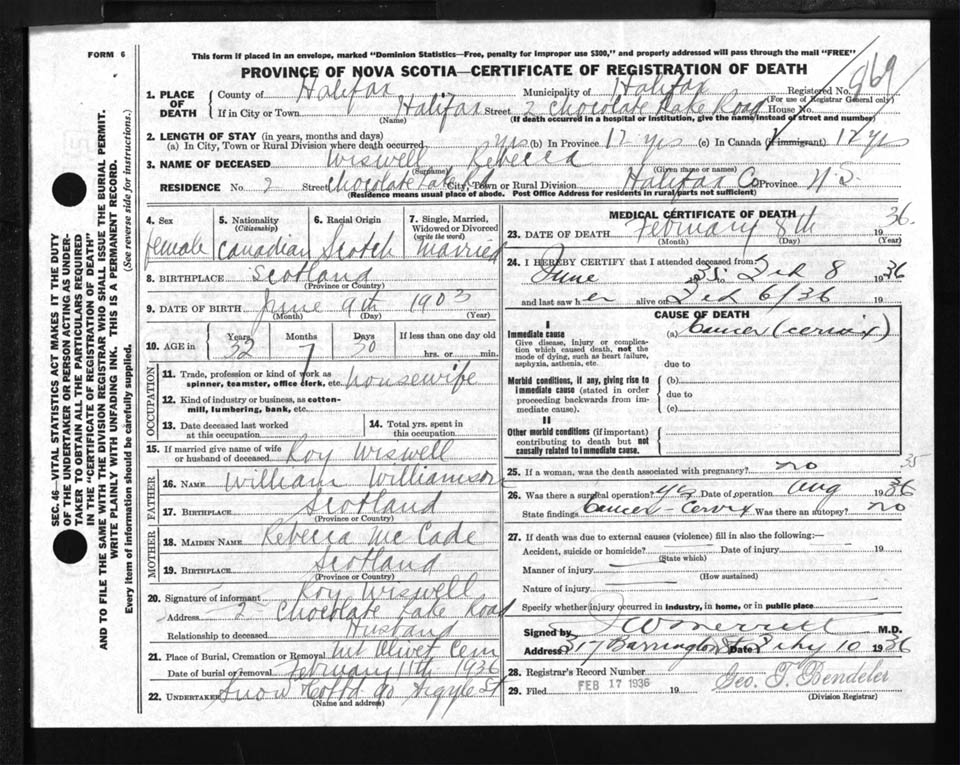 FORM 6
This form if placed in an envelope, marked "Dominion Statistics—Free, penalty for improper use $300," and properly addressed will pass through the mail "FREE"
PROVINCE OF NOVA SCOTIA—CERTIFICATE OF REGISTRATION OF DEATH
969
1. PLACE OF DEATH
County of Halifax Municipality of Halifax Registered No.
(For use of Registrar General only)
If in City or Town Halifax Street 2 Chocolate Lake Road House No.
(Name) (If death occurred in a hospital or institution, give the name instead of street and number)
2. LENGTH OF STAY (in years, months and days)
(a) In City, Town or Rural Division where death occurred yrs (b) In Province 12 yrs (c) In Canada (if immigrant) 12 yrs
3. NAME OF DECEASED Wiswell Rebecca
(Surname) (Given name or names)
RESIDENCE No. 2 Street Chocolate Lake Rd City, Town or Rural Division Halifax Co Province N.S.
(Residence means usual place of abode. Post Office Address for residents in rural parts not sufficient)
SEC. 46—VITAL STATISTICS ACT MAKES IT THE DUTY
OF THE UNDERTAKER OR PERSON ACTING AS UNDER-
TAKER TO OBTAIN ALL THE PARTICULARS REQUIRED
IN THE "CERTIFICATE OF REGISTRATION OF DEATH"
AND TO FILE THE SAME WITH THE DIVISION REGISTRAR WHO SHALL ISSUE THE BURIAL PERMIT.
WRITE PLAINLY WITH UNFADING INK. THIS IS A PERMANENT RECORD.
Every item of information should be carefully supplied. (See reverse side for instructions.)
4. Sex female
5. Nationality (Citizenship) Canadian
6. Racial Origin Scotch
7. Single, Married, Widowed or Divorced (write the word) married
8. BIRTHPLACE Scotland
(Province or Country)
9. DATE OF BIRTH June 9th 1903
(Month) (Day) (Year)
10. AGE in Years 32 Months 7 Days 30 If less than one day old
hrs. or min.
OCCUPATION
11. Trade, profession or kind of work as
spinner, teamster, office clerk, etc. housewife
12. Kind of industry or business, as cotton-
mill, lumbering, bank, etc.
13. Date deceased last worked at this occupation
14. Total yrs. spent in this occupation
15. If married give name of wife
or husband of deceased Roy Wiswell
FATHER
16. NAME William Williamson
17. BIRTHPLACE Scotland
(Province or Country)
MOTHER
18. MAIDEN NAME Rebecca Mc Cade
19. BIRTHPLACE Scotland
(Province or Country)
20. Signature of informant Roy Wiswell
Address 2 Chocolate Lake Road
Relationship to deceased Husband
21. Place of Burial, Cremation or Removal Mt Olivet Cem
Date of burial or removal February 11th 1936
22. UNDERTAKER Snow & Co Ltd 90 Argyle St
(Name and address)
MEDICAL CERTIFICATE OF DEATH
23. DATE OF DEATH February 8th 1936
(Month) (Day) (Year)
24. I HEREBY CERTIFY that I attended deceased from
June 35 to Feb 8 1936
and last saw her alive on Feb 6/36 19
CAUSE OF DEATH
I
Immediate cause (a) Cancer (cervix)
Give disease, injury or complica-
tion which caused death, not the
mode of dying, such as heart failure,
asphyxia, asthenia, etc.
due to
Morbid conditions, if any, giving rise to
immediate cause (stated in order
proceeding backwards from im-
mediate cause).
(b)
due to
(c)
II
Other morbid conditions (if important)
contributing to death but not
causally related to immediate cause.
25. If a woman, was the death associated with pregnancy? no
26. Was there a surgical operation? yes Date of operation Aug 1935
State findings Cancer - Cervix Was there an autopsy? no
27. If death was due to external causes (violence) fill in also the following:—
Accident, suicide or homicide? Date of injury 19
(State which)
Manner of injury
(How sustained)
Nature of injury
Specify whether injury occurred in industry, in home, or in public place
Signed by M.D.
Address 317 Barrington St Date 10 1936
28. Registrar's Record Number
29. Filed FEB 17 1936 19 Geo. T. Bendeler
(Division Registrar)